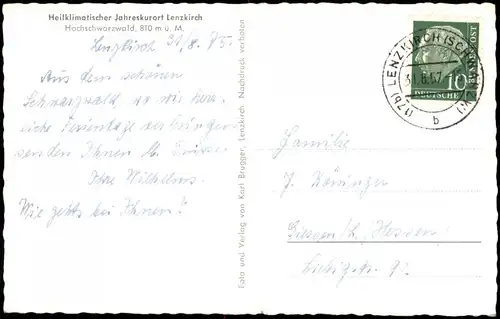 Heilklimatischer Jahreskurort Lenzkirch
Hochschwarzwald, 810 m ü. M.
Lenzkirch 31/8. 
Aus dem schönen
Schwarzwald wo wir herr-
liche Ferientage verbringen
senden Ihnen Grüsse
Ihre Wilhelms.
Wie gehts bei Ihnen!
Foto und Verlag von Karl Brugger, Lenzkirch. Nachdruck verboten
(17b) LENZKIRCH (SCHWARZW)
31.8.57
b
10
DEUTSCHE
BUNDESPOST
Familie
J.
Giessen/L. Hessen